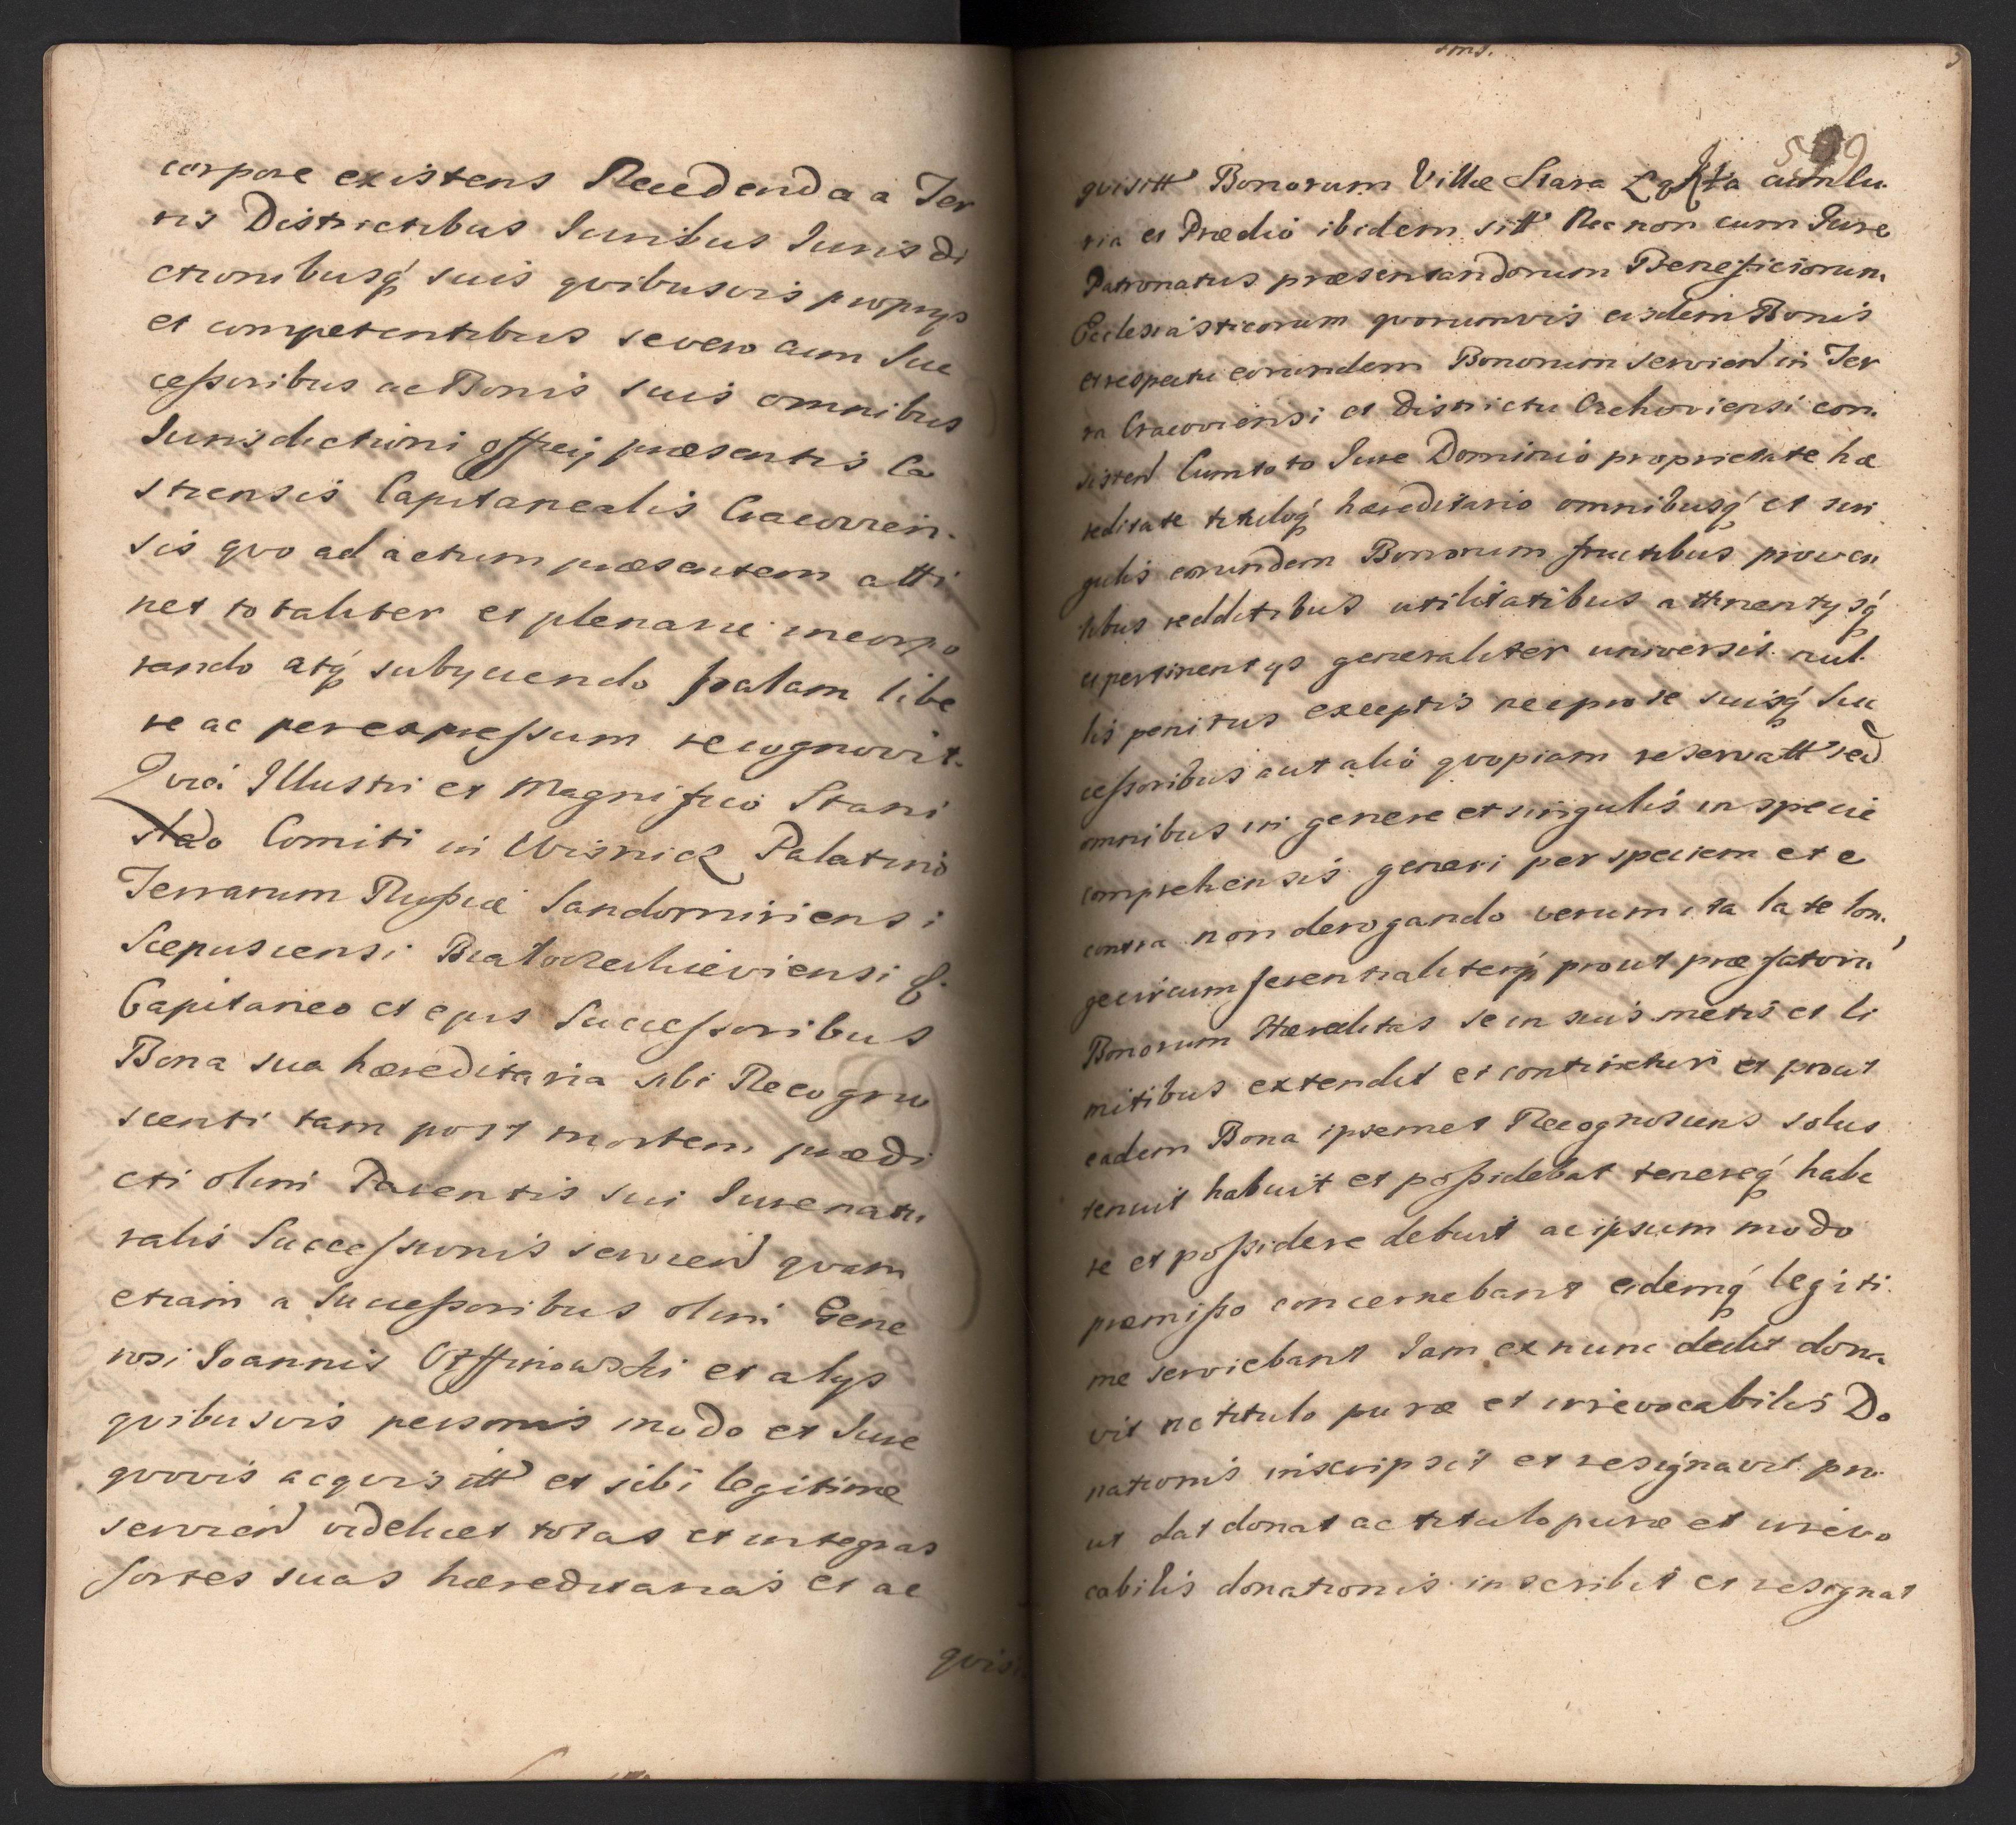 corpore existens Recedendo a Ter
ris Districtibus Iuribus Iuris di
ctionibusq́ suis quibusvis proprijs
et competentibus se vero cum Suc
cessoribus ac Bonis suis omnibus
Iurisdictioni offcij præsentis Ca
strensis Capitanealis Cracovien.
sis quo ad actum præsentem atti
net totaliter et plenarie incorpo
rando atq́ subijciendo palam libe
re ac per expressum recognovit.
Quia Illustri et Magnifico Stani
slao Comiti in Wisnicz Palatino
Terrarum Russiæ Sandomiriensi
Scepusiensi
Capitaneo et ejus Successoribus
Bona sua hæreditaria sibi Recogno
scenti tam post mortem prædi
cti olim Parentis sui Iure natu
ralis Successionis servien quam
etiam a Successoribus olim Gene
rosi Ioannis Ossinowski et alijs
quibusvis personis modo et Iure
quovis acquisitt et sibi legitime
servien videlicet totas et integras
sortes suas hæreditarias et ac
quisi
quisitt Bonorum Villæ Stara cum Cu
ria et Prædio ibidem sitt Nec non cum Iure
Patronatus præsentandorum Beneficiorum
Ecclesiasticorum quorumvis eisdem Bonis
et respectu eorundem Bonorum servien in Ter
ra Cracoviensi et Districtu Czchoviensi con.
sisten Cum toto Iure Dominio proprietate hæ
reditate tituloq́ hæreditario omnibusq́ et sin
gulis eorundem Bonorum fructibus proven
tibus redditibus utilitatibus attinentijsq́
ac pertinentijs generaliter universis nul.
lis penitus exceptis nec pro se suisq́ Suc
cessoribus aut alio quopiam reservatt sed
omnibus in genere et singulis in specie
comprehensis generi per speciem et e
contra non derogando verum ita late lon.
ge circumferentialiterq́ prout præfatorum
Bonorum Hæreditas se in suis metis et li
mitibus extendit et continetur et prout
eadem Bona ipsemet Recognoscens solus
tenuit habuit et possidebat tenereq́ habe
re et possidere debuit ac ipsum modo
præmisso concernebant eidemq́ legiti.
me serviebant Iam ex nunc dedit dona
vit ac titulo puræ et irrevocabilis Do
nationis inscripsit et resignavit pro.
ut dat donat ac titulo puræ et irrevo
cabilis donationis inscribit et resignat